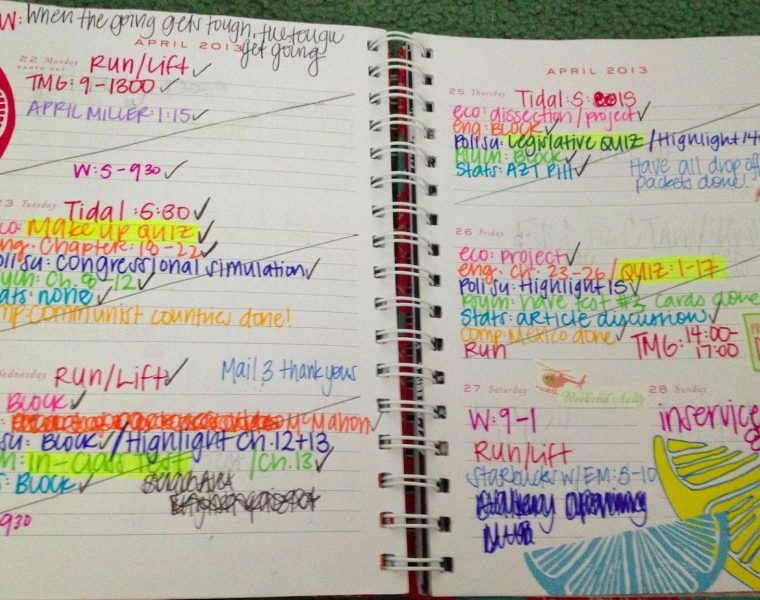 W: When the going gets tough, the tough
get going
APRIL 2013
22 Monday Run/Lift ✓
EARTH DAY
TMG: 9-1300 ✓
APRIL MILLER: 1:15 ✓
W: 5-930 ✓
23 Tuesday Tidal: 6:30 ✓
eco: Make up Quiz ✓
eng: Chapter: 18-22 ✓
polisu: Congressional simulation ✓
Psych: Ch. 8-12 ✓
stats: none ✓
comp: communist countries done!
Wednesday Run/Lift ✓ Mail 3 thank yous
BLOCK ✓
McMahon ✓
su: BLOCK ✓ / Highlight Ch. 12+13
in-class Test / Ch. 13 ✓
s: BLOCK ✓
930
APRIL 2013
25 Thursday Tidal: 5: 15
eco: dissection/project ✓
eng: BLOCK ✓
polisu: Legislative QUIZ / Highlight 14
BLOCK ✓
Stats: AZT Pill ✓ Have all drop off
packets done!
26 Friday
eco: project ✓
eng: Ch. 23-26 / QUIZ: 1-17
polisu: Highlight 15 ✓
have test #3 cards done
Stats: article discussion ✓
comp: Mexico done ✓
Run TMG: 14:00-
17:00
27 Saturday 28 Sunday
W: 9-1 inservice
Run/Lift
Starbucks w/ EM: 5-10